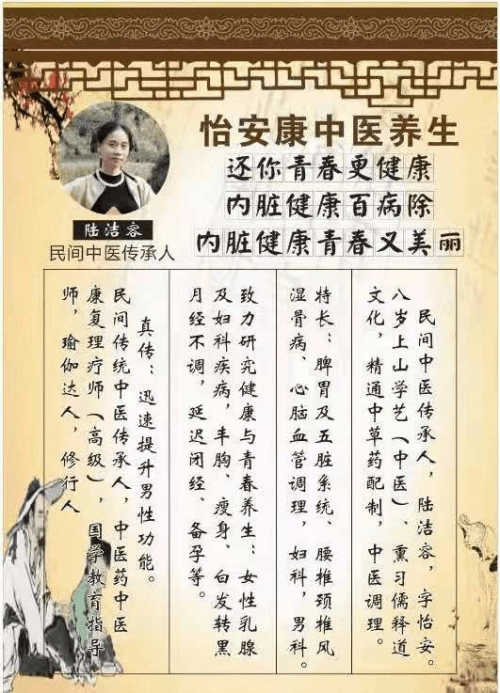 怡安康中医养生
还你青春更健康
内脏健康百病除
内脏健康青春又美丽
陆洁容
民间中医传承人
民间中医传承人，陆洁容，字怡安。
八岁上山学艺（中医）、熏习儒释道
文化，精通中草药配制，中医调理。
特长：脾胃及五脏系统、腰椎颈椎风
湿骨病、心脑血管调理，妇科，男科。
致力研究健康与青春养生：女性乳腺
及妇科疾病，丰胸、瘦身、白发转黑
月经不调，延迟闭经、备孕等。
真传：迅速提升男性功能。
民间传统中医传承人，中医药中医
康复理疗师（高级），国学教育指导
师，瑜伽达人，修行人